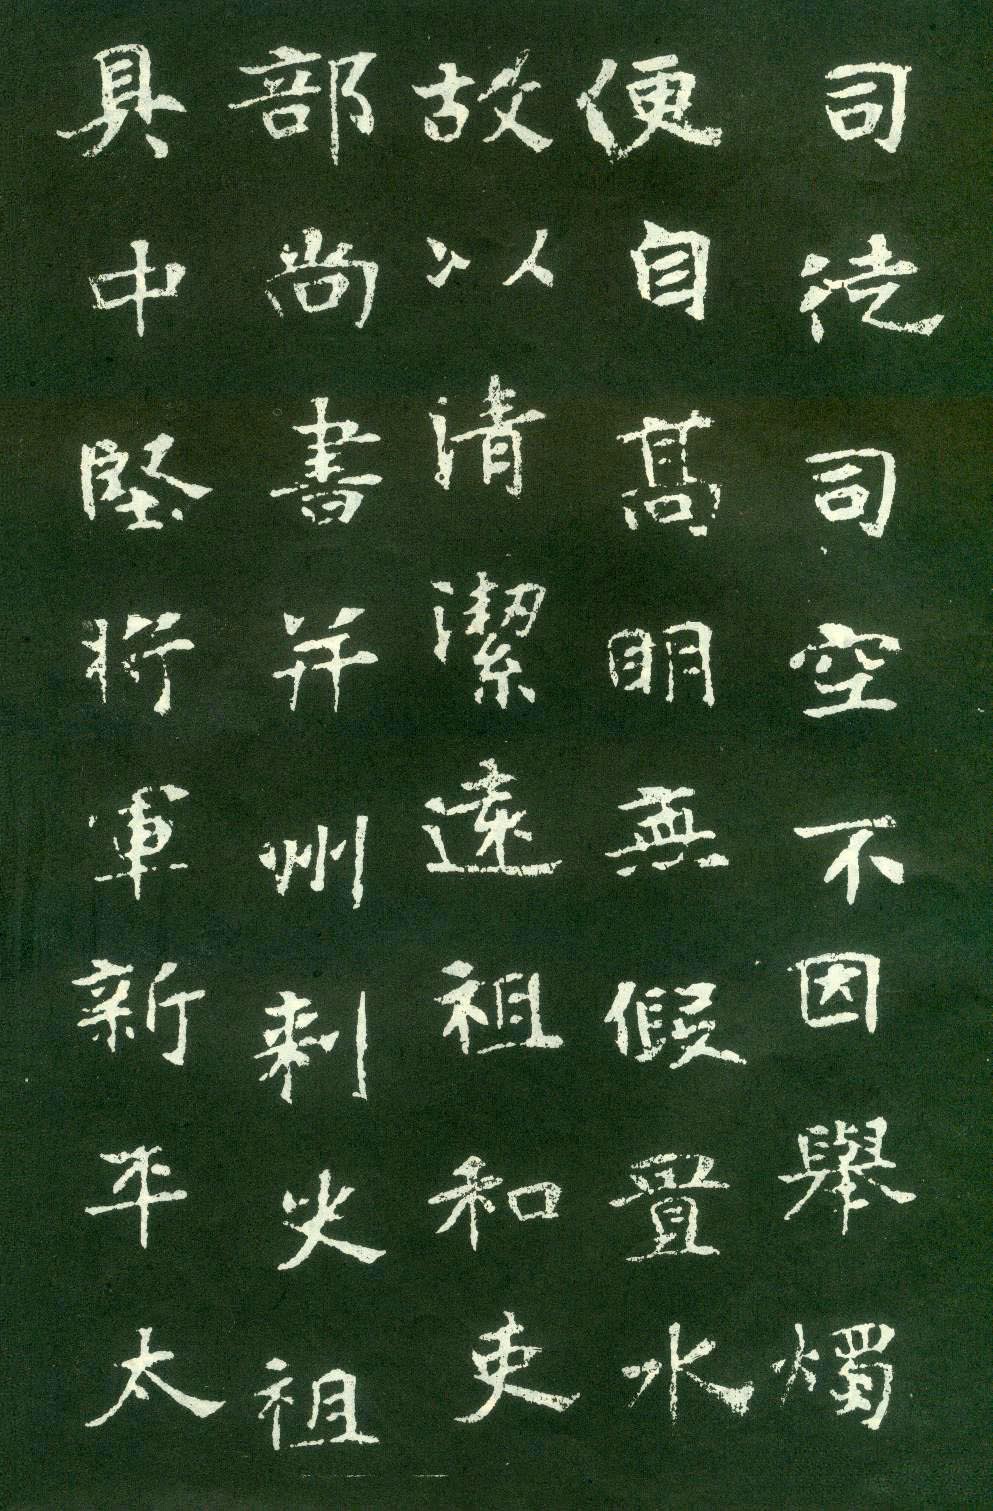 司徒司空不因舉燭
便自高明無假置水
故以清潔遠祖和吏
部尚書并州刺史祖
具中堅將軍新平太